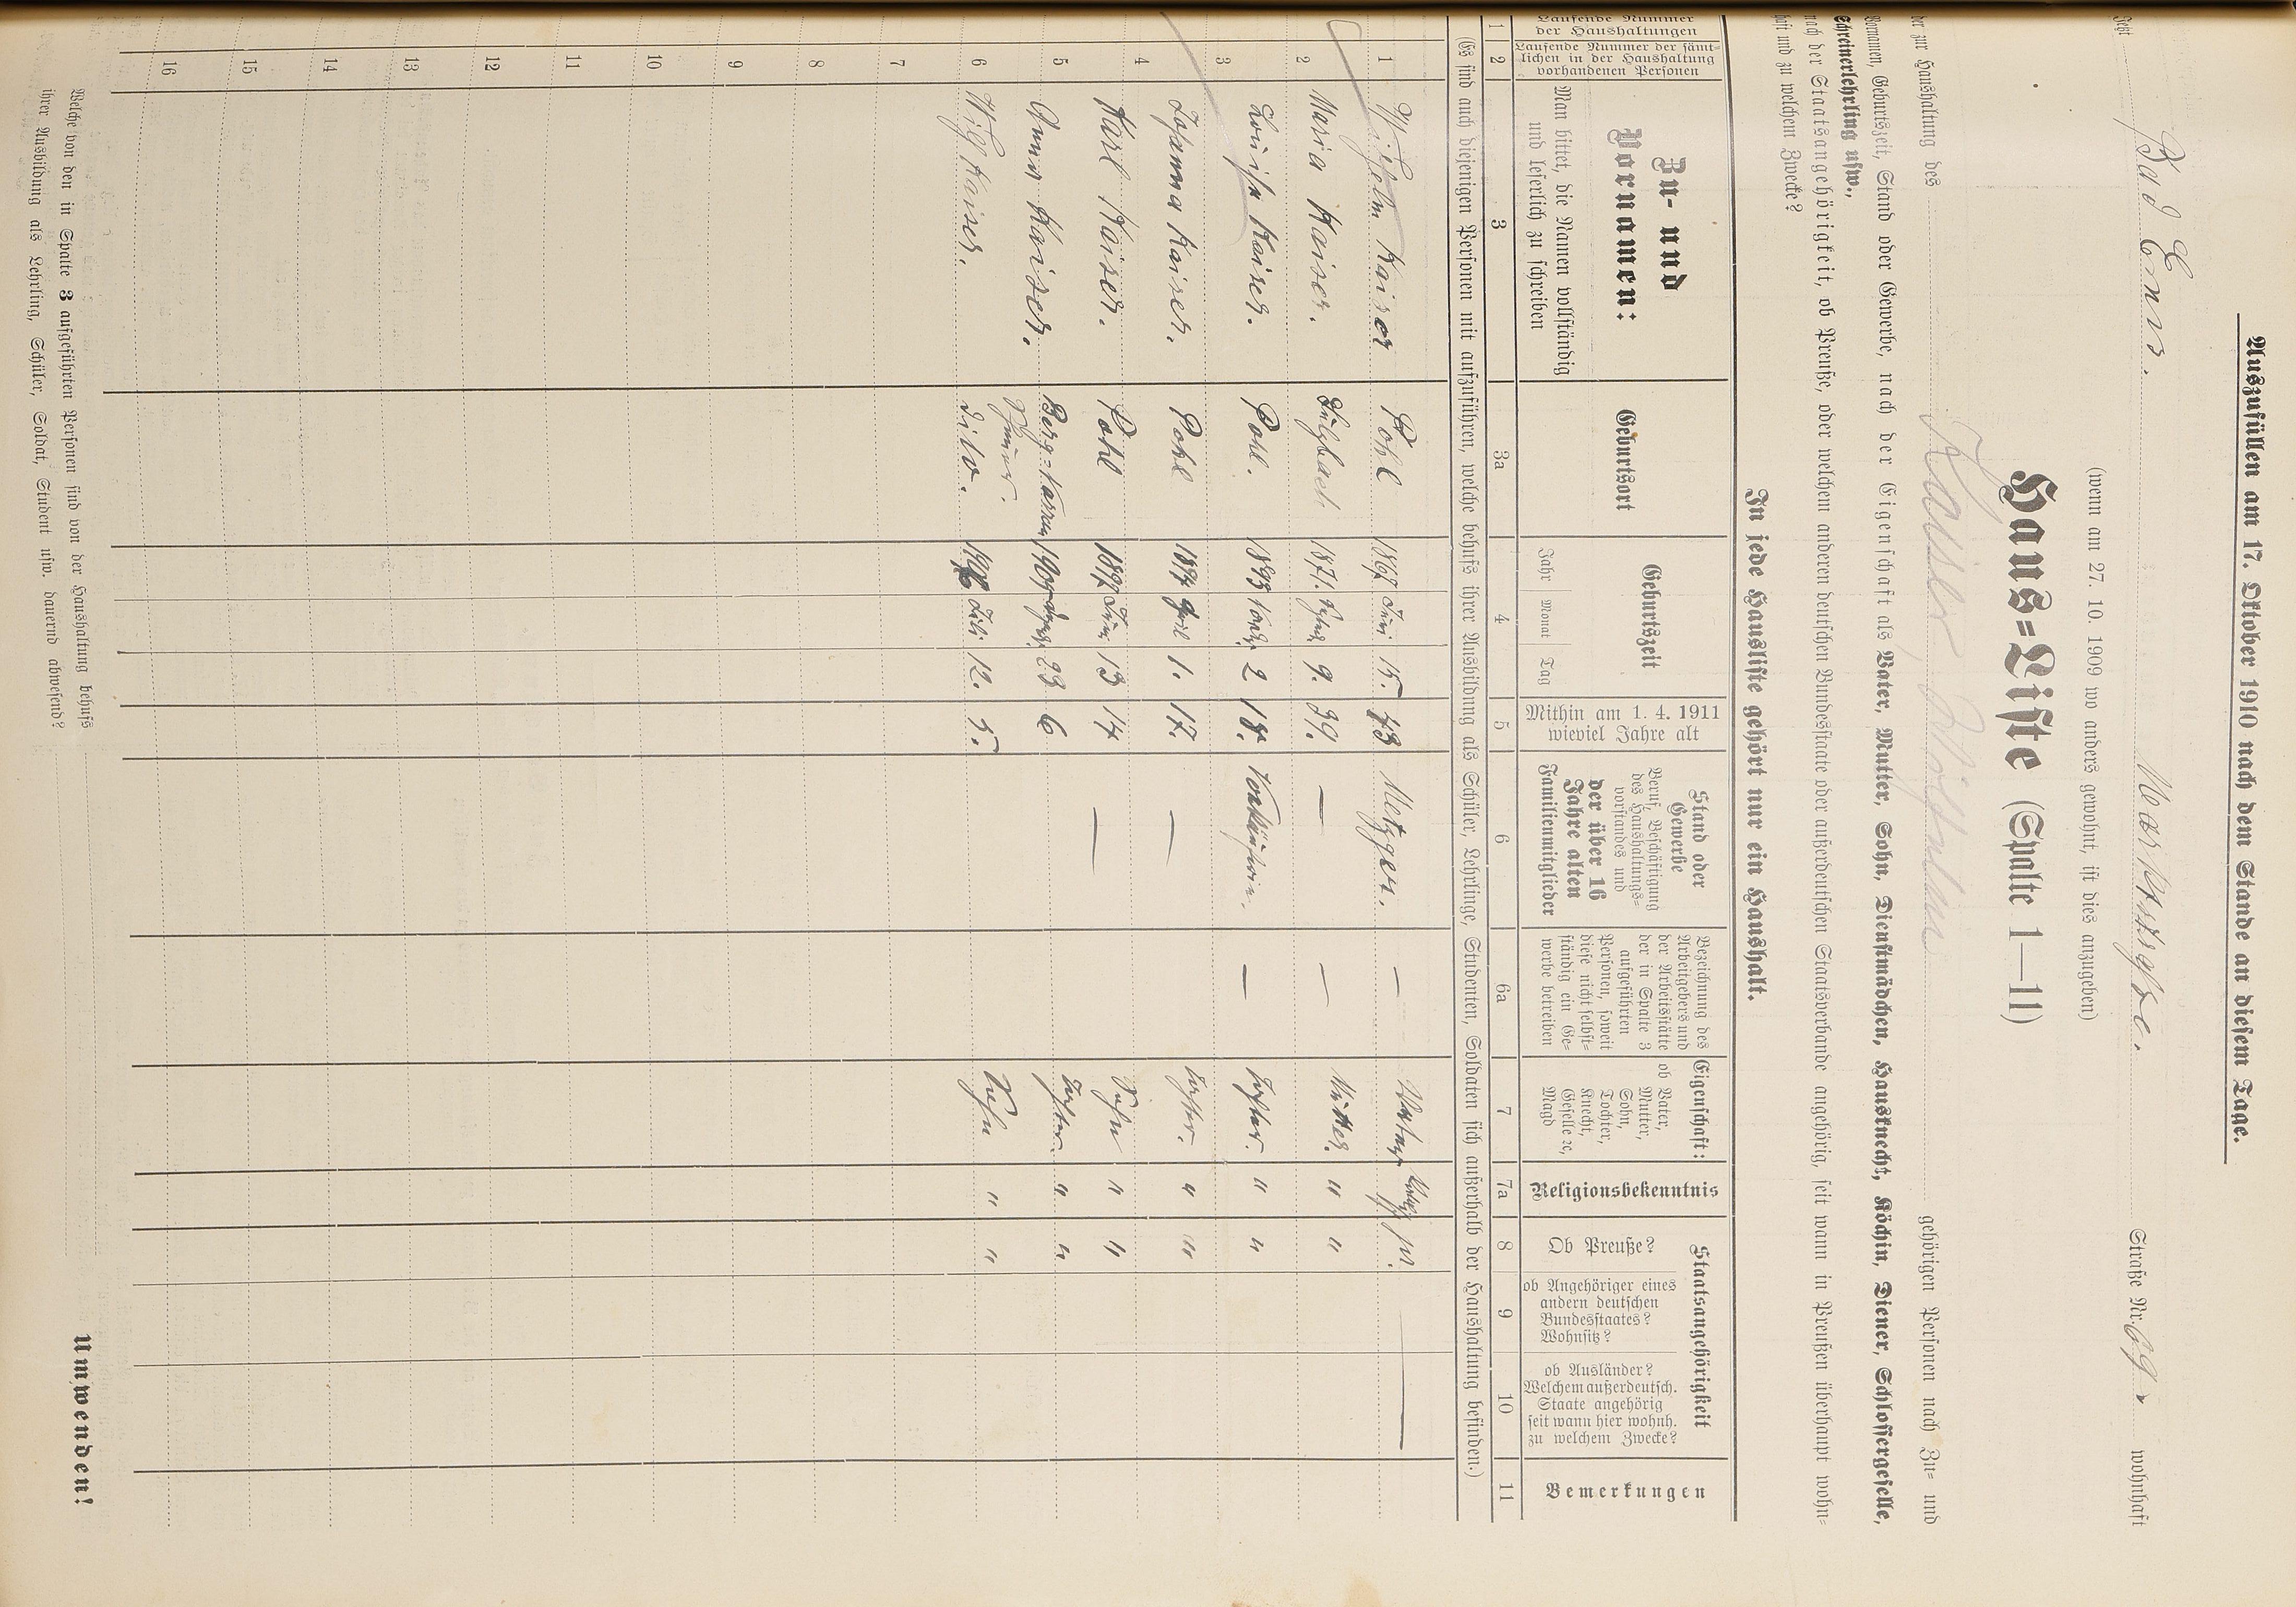 Auszufüllen am 17. Oktober 1910 nach dem Stande an diesem Tage.
Jetzt Bad Ems. Marktstraße. Straße Nr. 69. wohnhaft
(wenn am 27. 10. 1909 wo anders gewohnt, ist dies anzugeben)
Haus=Liste (Spalte 1—11)
der zur Haushaltung des Kaiser Wilhelm gehörigen Personen nach Zu= und
Vornamen, Geburtszeit, Stand oder Gewerbe, nach der Eigenschaft als Vater, Mutter, Sohn, Dienstmädchen, Hausknecht, Köchin, Diener, Schlossergeselle,
Schreinerlehrling usw.,
nach der Staatsangehörigkeit, ob Preuße, oder welchem anderen deutschen Bundesstaate oder außerdeutschen Staatsverbande angehörig, seit wann in Preußen überhaupt wohn=
haft und zu welchem Zwecke?
In jede Hausliste gehört nur ein Haushalt.
Laufende Nummer der Haushaltungen
Laufende Nummer der sämt=lichen in der Haushaltung vorhandenen Personen
Zu- und Vornamen:
Man bittet, die Namen vollständig und leserlich zu schreiben
Geburtsort
Geburtszeit
Jahr Monat Tag
Mithin am 1. 4. 1911 wieviel Jahre alt
Stand oder Gewerbe
Beruf, Beschäftigung des Haushaltungs=vorstandes und der über 16 Jahre alten Familienmitglieder
Bezeichnung des Arbeitgebers und der Arbeitsstätte der in Spalte 3 aufgeführten Personen, soweit diese nicht selbst=ständig ein Ge=werbe betreiben
Eigenschaft:
ob Vater, Mutter, Sohn, Tochter, Knecht, Geselle ec, Magd
Religionsbekenntnis
Staatsangehörigkeit
Ob Preuße?
ob Angehöriger eines andern deutschen Bundesstaates? Wohnsitz?
ob Ausländer? Welchem außerdeutsch. Staate angehörig seit wann hier wohnh. zu welchem Zwecke?
Bemerkungen
1 2 3 3a 4 5 6 6a 7 7a 8 9 10 11
(Es sind auch diejenigen Personen mit aufzuführen, welche behufs ihrer Ausbildung als Schüler, Lehrlinge, Studenten, Soldaten sich außerhalb der Haushaltung befinden.)
1 Wilhelm Kaiser Pohl 1867 Juni 15. 43 Metzger. —
2 Maria Kaiser. Sulzbach 1871. 9. 39. — — Mutter. " "
3 Louise Kaiser. Pohl. 1893 2 18. Verkäuferin. — Tochter. " "
4 Johanna Kaiser. Pohl April 1. 17. — Tochter. " "
5 Karl Kaiser. Pohl 1897 Juni 13 14 — Sohn " "
Anna Kaiser. Berg=Nassau 23 6 Tochter " "
Scheuern.
6 Wilh Kaiser. dito. Juli 12. 5. Sohn " "
7
8
9
10
11
12
13
14
15
16
Welche von den in Spalte 3 aufgeführten Personen sind von der Haushaltung behufs
ihrer Ausbildung als Lehrling, Schüler, Soldat, Student usw. dauernd abwesend?
Umwenden!